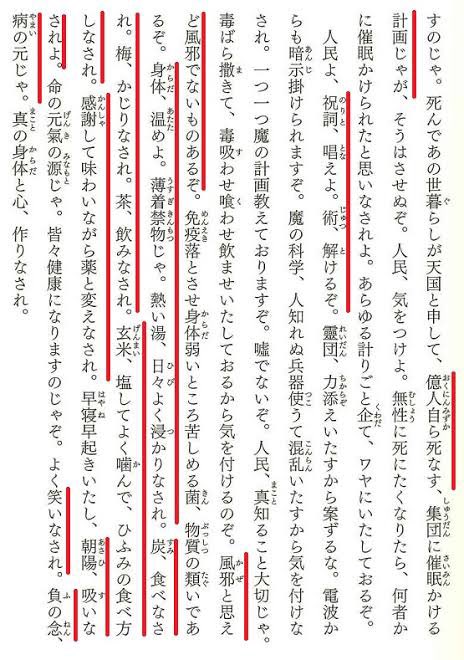 すのじゃ。死んであの世暮らしが天国と申して、億人自ら死なす、集団に催眠かける
計画じゃが、そうはさせぬぞ。人民、気をつけよ。無性に死にたくなりたら、何者か
に催眠かけられたと思いなされよ。あらゆる計りごと企て、ワヤにいたしておるぞ。
人民よ、祝詞、唱えよ。術、解けるぞ。靈団、力添えいたすから案ずるな。電波か
らも暗示掛けられますぞ。魔の科学、人知れぬ兵器使うて混乱いたすから気を付けな
され。一つ一つ魔の計画教えておりますぞ。嘘でないぞ。人民、真知ること大切じゃ。
毒ばら撒きて、毒吸わせ喰わせ飲ませいたしておるから気を付けるのぞ。風邪と思え
ど風邪でないものあるぞ。免疫落とさせ身体弱いところ苦しめる菌、物質の類いであ
るぞ。身体、温めよ。薄着禁物じゃ。熱い湯、日々よく浸かりなされ。炭、食べなさ
れ。梅、かじりなされ。茶、飲みなされ。玄米、塩してよく噛んで、ひふみの食べ方
しなされ。感謝して味わいながら薬と変えなされ。早寝早起きいたし、朝陽、吸いな
されよ。命の元氣の源じゃ。皆々健康になりますのじゃぞ。よく笑いなされ。負の念、
病の元じゃ。真の身体と心、作りなされ。